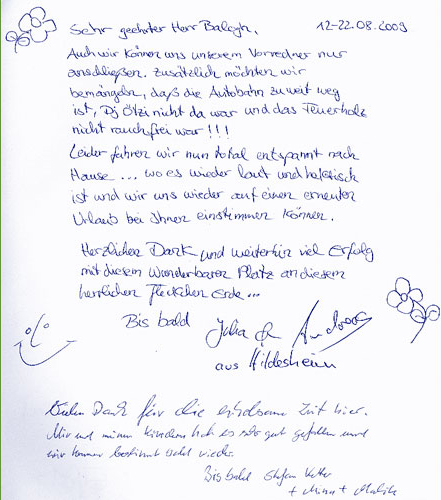 Sehr geehrter Herr Balogh, 12-22.08.2009
Auch wir können uns unserem Vorredner nur
anschließen. Zusätzlich möchten wir
bemängeln, daß die Autobahn zu weit weg
ist, Dj Ötzi nicht da war und das Feuerholz
nicht rauchfrei war!!!
Leider fahren wir nun total entspannt nach
Hause ... wo es wieder laut und hektisch
ist und wir uns wieder auf einen erneuten
Urlaub bei Ihnen einstimmen können.
Herzlichen Dank und weiterhin viel Erfolg
mit diesem wunderbaren Platz an diesem
herrlichen Fleckchen Erde...
Bis bald Julia & Andreas
aus Hildesheim
Vielen Dank für die erholsame Zeit hier.
Mir und meinen Kindern hat es sehr gut gefallen und
wir kommen bestimmt bald wieder.
Bis bald Stefan
+ Minna +